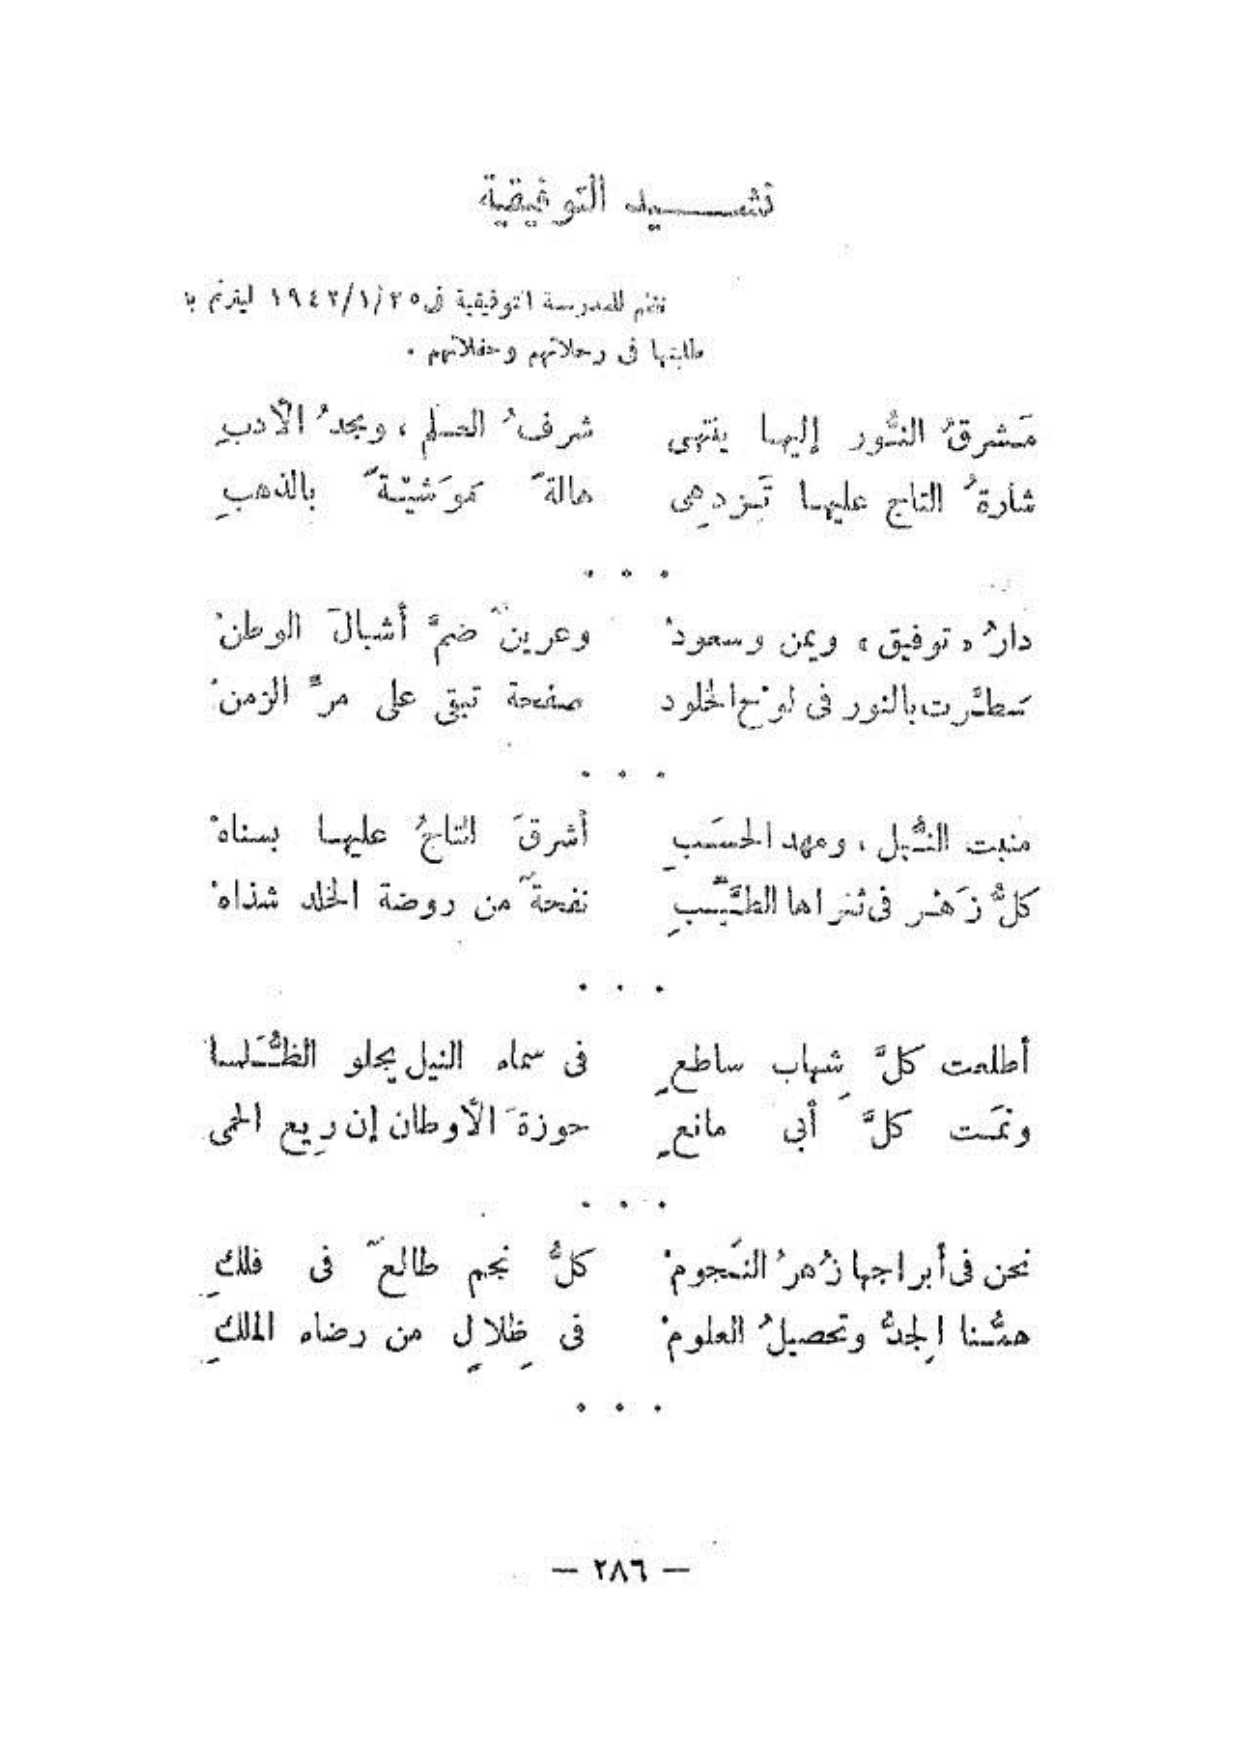 نشيد التوفيقية
نظم للمدرسة التوفيقية فى ٢٥/١/١٩٤٣ ليترنم بـ
طلبتها فى رحلاتهم وحفلاتهم .
مَشرقُ النُّور إليها ينتهى شرفُ العلم ، ومجدُ الأدبِ
شارةُ التاج عليها تَزدهِى هالةً مَوشيّةً بالذهبِ
. . .
دارُ « توفيق » ويمن وسعودْ وعرينٌ ضمَّ أشبالَ الوطنْ
سَطَّرت بالنور فى لوْح الخلود صفحة تبقى على مرِّ الزمنْ
. . .
منبت النُّبل ، ومهد الحسَبِ أشرقَ التاجُ عليها بسناهْ
كلُّ زَهْر فى ثراها الطيِّبِ نفحةٌ من روضة الخلد شذاهْ
. . .
أطلعت كلَّ شِهاب ساطعٍ فى سماء النيل يجلو الظُّلَما
ونمَت كلَّ أبى مانعٍ حوزةَ الأوطان إن رِيع الحمى
. . .
نحن فى أبراجها زُهرُ النُّجومْ كلُّ نجم طالعٌ فى فلكِ
همُّنا الجِدُّ وتحصيلُ العلومْ فى ظِلالٍ من رضاء الملكِ
. . .
— ٢٨٦ —